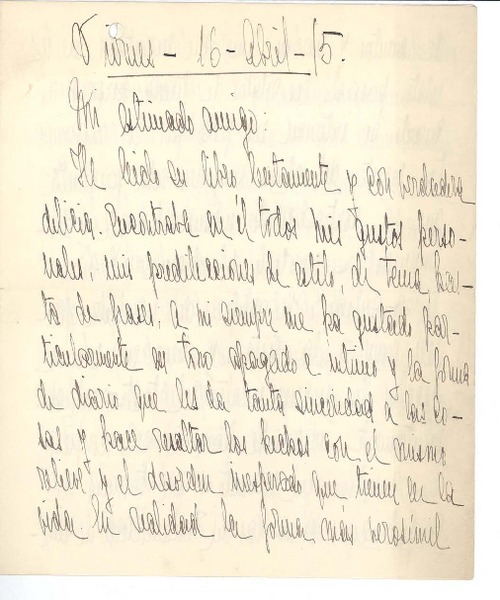 Viernes - 16 - Abril - 15.
Mi estimado amigo:
He leido su libro lentamente y con verdadera
delicia. Encontraba en él todos mis gustos perso-
nales, mis predilecciones de estilo, de tema, has-
ta de frases; a mi siempre me ha gustado par-
ticularmente un tono apagado e intimo y la forma
de diario que les da tanta sinceridad a las co-
sas y hace resaltar los hechos con el mismo
relieve y el desorden inesperado que tienen en la
vida. En realidad la forma más verosímil